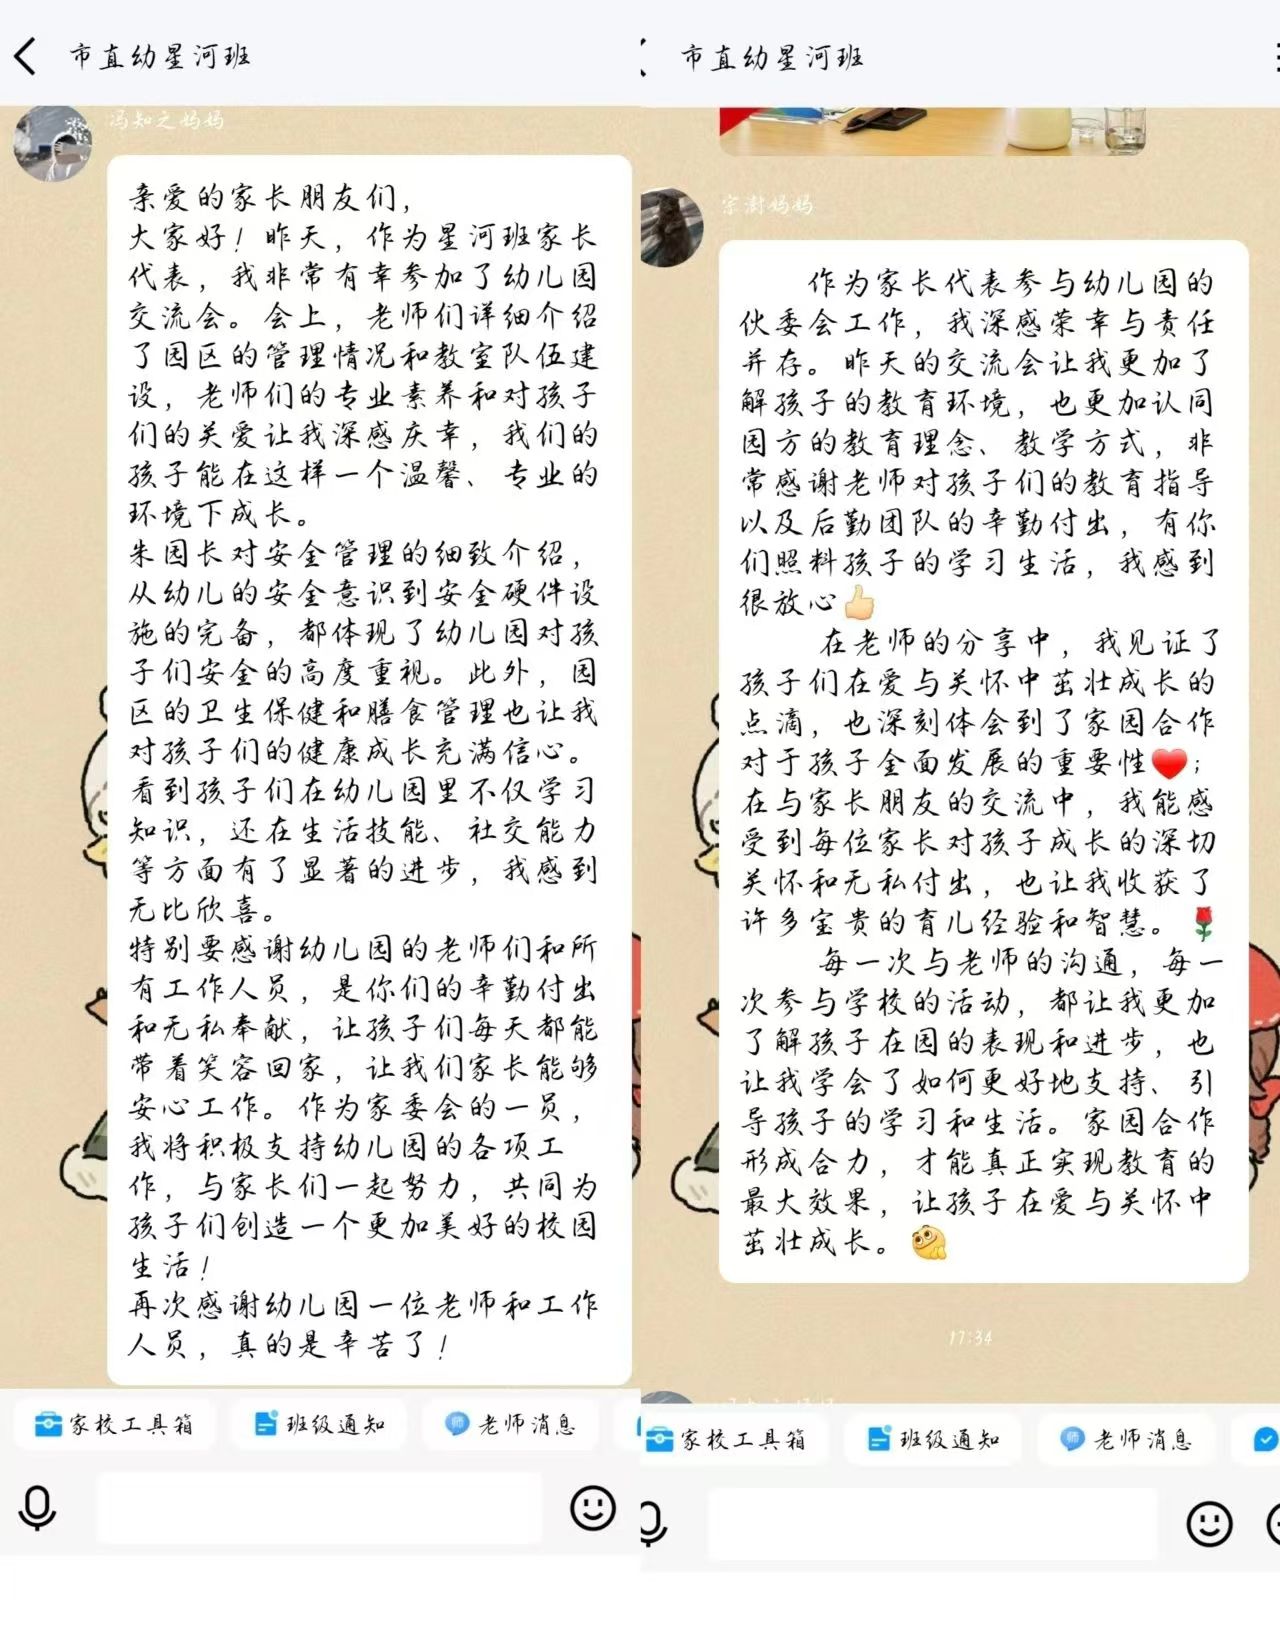 市直幼星河班
冯知之妈妈
亲爱的家长朋友们，
大家好！昨天，作为星河班家长
代表，我非常有幸参加了幼儿园
交流会。会上，老师们详细介绍
了园区的管理情况和教室队伍建
设，老师们的专业素养和对孩子
们的关爱让我深感庆幸，我们的
孩子能在这样一个温馨、专业的
环境下成长。
朱园长对安全管理的细致介绍，
从幼儿的安全意识到安全硬件设
施的完备，都体现了幼儿园对孩
子们安全的高度重视。此外，园
区的卫生保健和膳食管理也让我
对孩子们的健康成长充满信心。
看到孩子们在幼儿园里不仅学习
知识，还在生活技能、社交能力
等方面有了显著的进步，我感到
无比欣喜。
特别要感谢幼儿园的老师们和所
有工作人员，是你们的辛勤付出
和无私奉献，让孩子们每天都能
带着笑容回家，让我们家长能够
安心工作。作为家委会的一员，
我将积极支持幼儿园的各项工
作，与家长们一起努力，共同为
孩子们创造一个更加美好的校园
生活！
再次感谢幼儿园一位老师和工作
人员，真的是辛苦了！
家校工具箱
班级通知
老师消息
市直幼星河班
宗澍妈妈
作为家长代表参与幼儿园的
伙委会工作，我深感荣幸与责任
并存。昨天的交流会让我更加了
解孩子的教育环境，也更加认同
园方的教育理念、教学方式，非
常感谢老师对孩子们的教育指导
以及后勤团队的辛勤付出，有你
们照料孩子的学习生活，我感到
很放心👍
在老师的分享中，我见证了
孩子们在爱与关怀中茁壮成长的
点滴，也深刻体会到了家园合作
对于孩子全面发展的重要性❤️；
在与家长朋友的交流中，我能感
受到每位家长对孩子成长的深切
关怀和无私付出，也让我收获了
许多宝贵的育儿经验和智慧。🌹
每一次与老师的沟通，每一
次参与学校的活动，都让我更加
了解孩子在园的表现和进步，也
让我学会了如何更好地支持、引
导孩子的学习和生活。家园合作
形成合力，才能真正实现教育的
最大效果，让孩子在爱与关怀中
茁壮成长。
17:34
家校工具箱
班级通知
老师消息